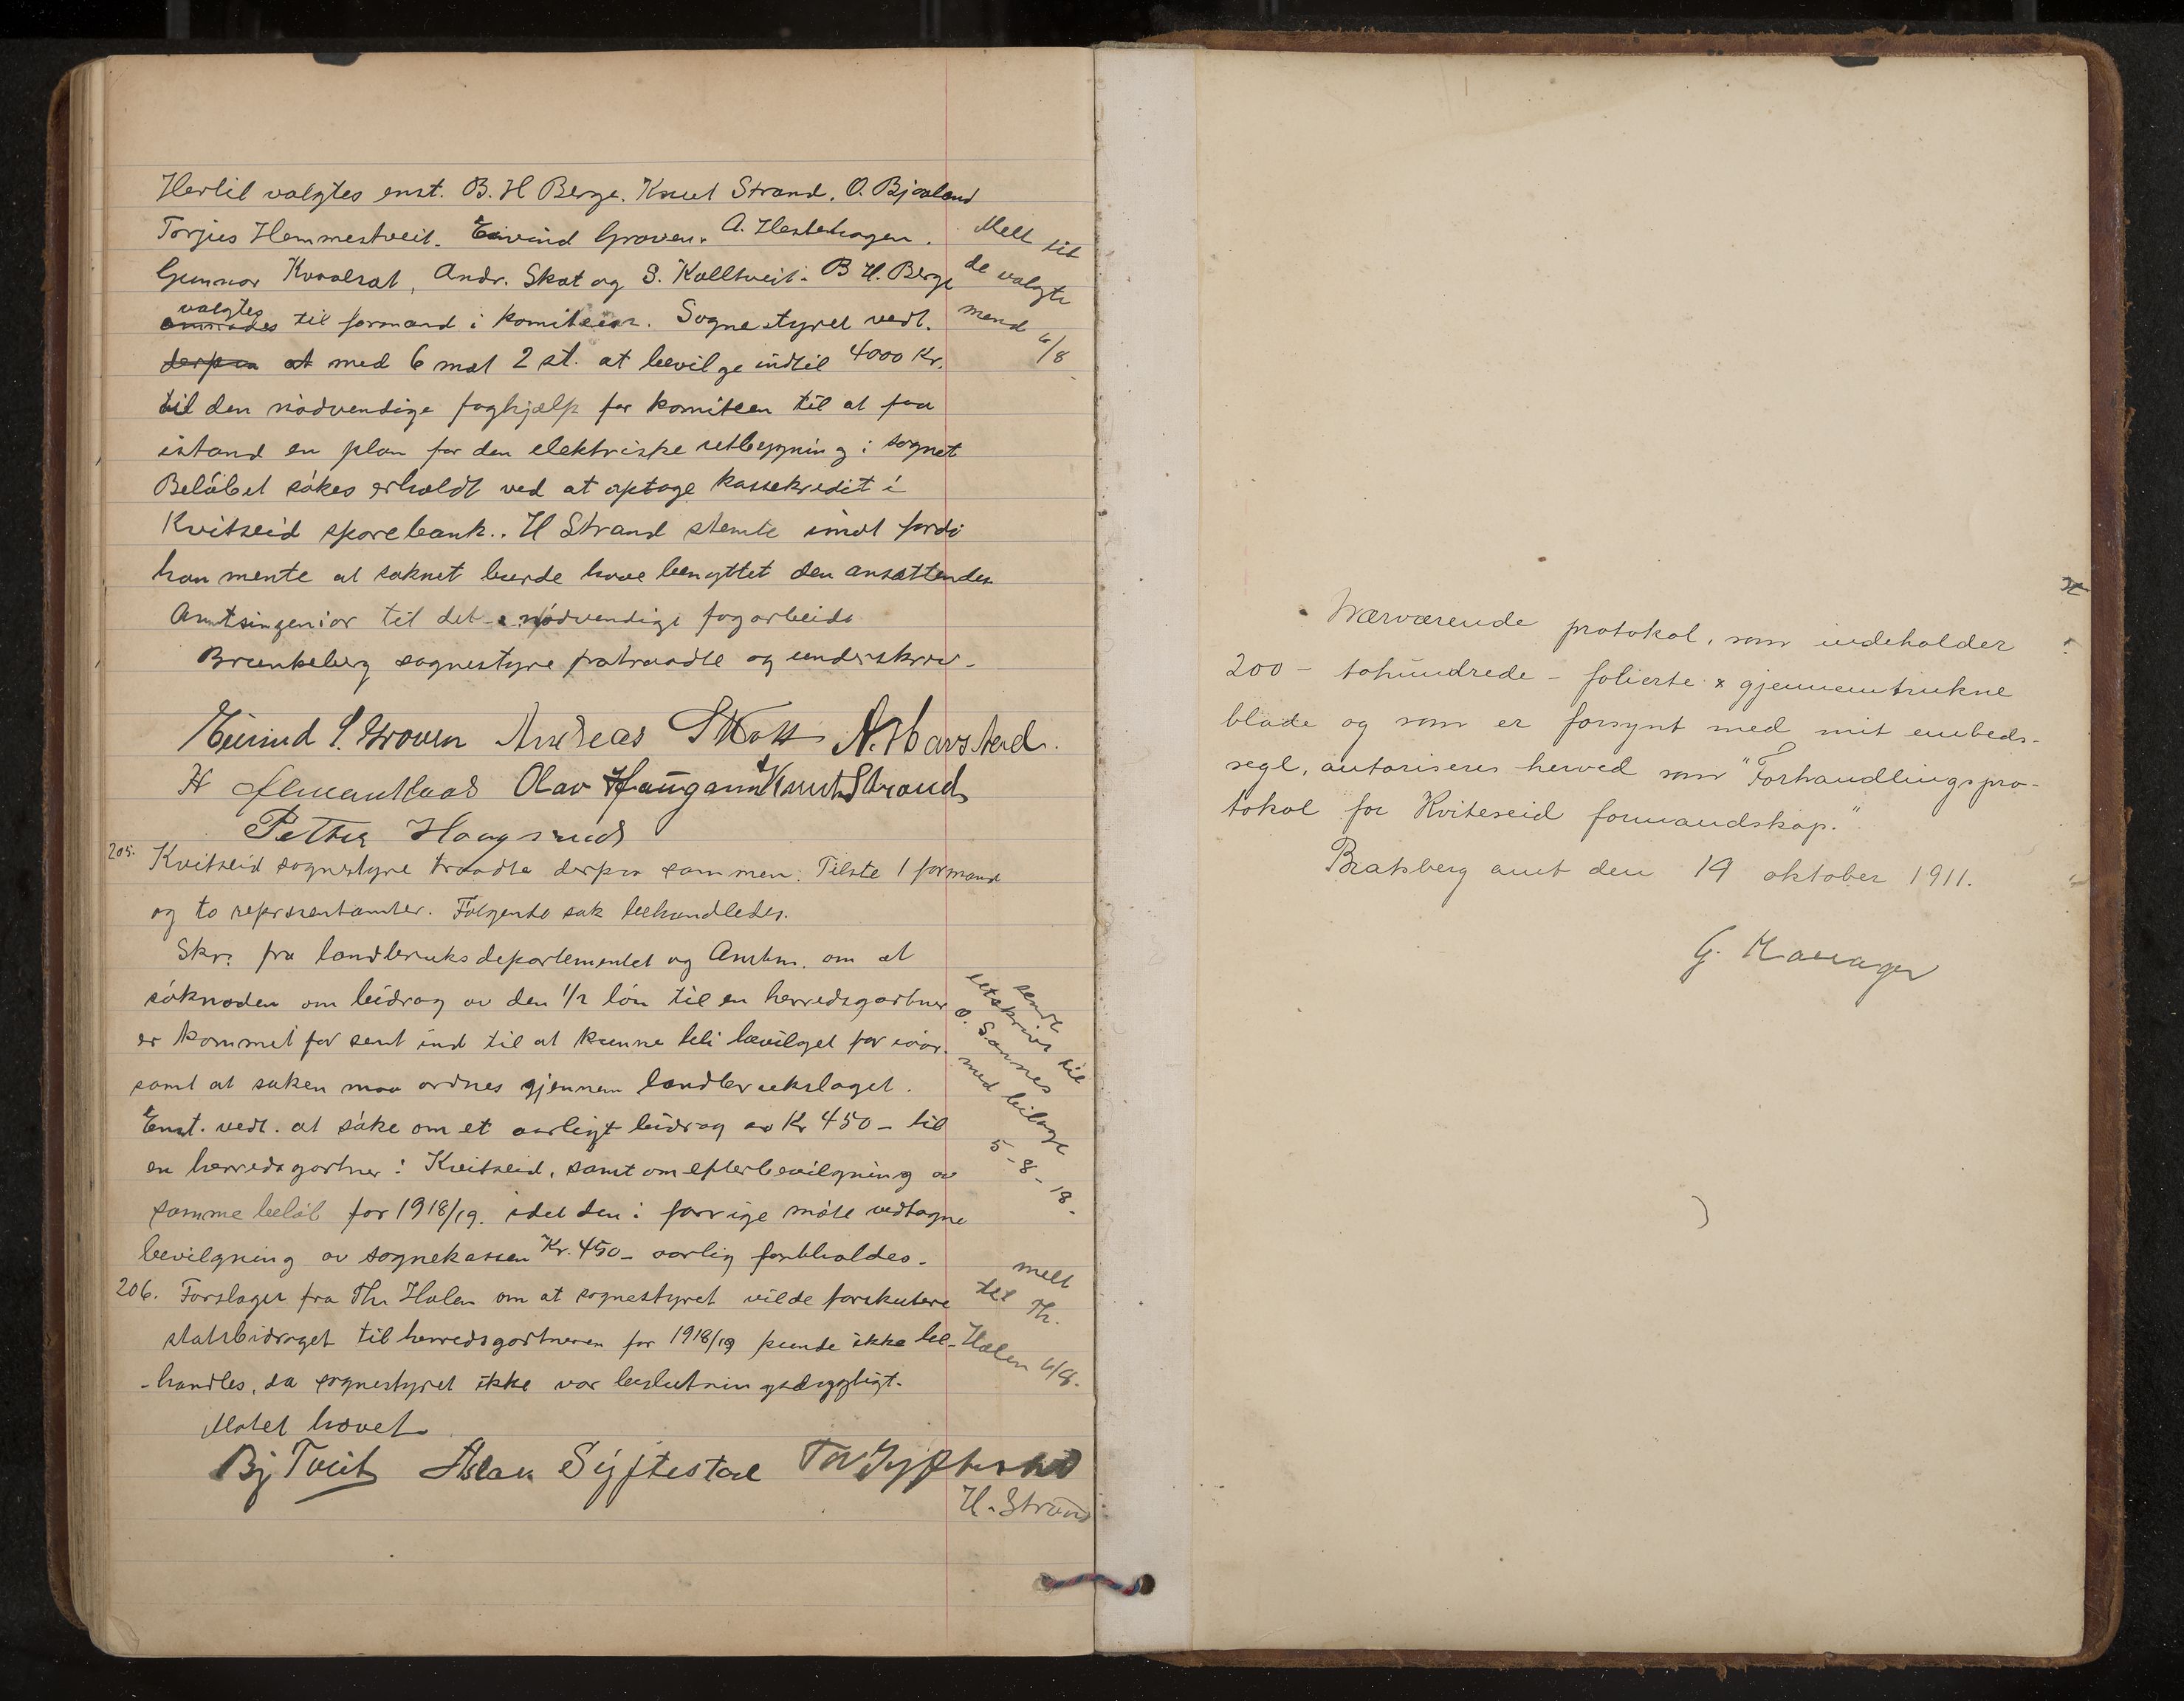 Hertil valgtes enst. B. H Berge. Knut Strand. O. Bjaaland
Torjus Hemmestveit. Eivind Groven. A. Hestehagen.
Gunnar Kvaalsat, Andr. Skat og S. Kolltveit. B H. Berge
valgtes
til formand i komiteen. Sognestyret vedt.
derpaa at med 6 mot 2 st. at bevilge indtil 4000 Kr.
til den nödvendige faghjælp for komiteen til at faa
istand en plan for den elektriske utbygning i sognet
Belöbet sökes erholdt ved at optage kassekredit i
Kvitseid sparebank.. H Strand stemte imot fordi
han mente at soknet burde have benyttet den ansættendes
Amtsingeniør til det nödvendige fagarbeide
Brunkeberg sognestyre fratraadte og underskrev.
Melt til
de valgte
mend 6/8
Eivind S. Groven Andreas Skott N. Haarstad.
H Olav Haugann Knut Strand
Petter Haugsrud
205. Kvitseid sognestyre traadte derpaa sammen. Tilste 1 formand
og to repræsentanter. Følgende sak behandledes.
Skr: fra landbruksdepartementet og Amtm. om at
söknaden om bidrag av den 1/2 lön til en herredsgartner
er kommet for sent ind til at kunne bli bevilget for iaar.
samt at saken maa ordnes gjennem landbrukslaget.
Enst. vedt. at söke om et aarligt bidrag av Kr 450 - til
en herredsgartner i Kvitseid, samt om efterbevilgning av
samme belöb for 1918/19. idet den i forrige möte vedtagne
bevilgning av sognekassen Kr. 450 - aarlig forbholdes.
sendt
utskrift til
O. Sannes
med bilage
5 - 8 - 18.
206. Forslaget fra Th. Holen om at sognestyret vilde forskutere
statsbidraget til herredsgartneren for 1918/19 kunde ikke be-
-handles, da sognestyret ikke var beslutningsdygtigt.
Møtet hævet.
melt
til Th.
Holen 6/8.
Bj Tveit Aslak Sijftestad T Syftestad
H. Strand
Nærværende protokol, som indeholder
200 - tohundrede - folierte & gjennemtrukne
blade og som er forsynt med mit embeds-
segl, autoriseres herved som "Forhandlingspro-
tokol for Kviteseid formandskap."
Bratsberg amt den 19 oktober 1911.